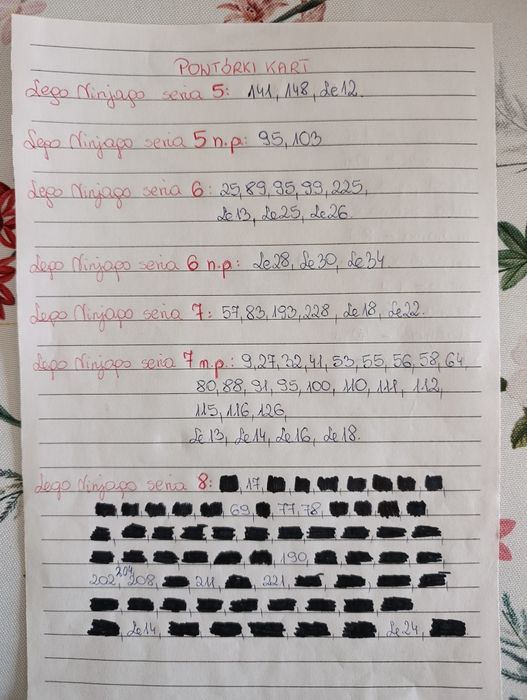 POWTÓRKI KART
Lego Ninjago seria 5: 141, 148, Le12.
Lego Ninjago seria 5 n.p.: 95, 103
Lego Ninjago seria 6: 25, 89, 95, 99, 225,
Le13, Le25, Le26.
Lego Ninjago seria 6 n.p.: Le28, Le30, Le34
Lego Ninjago seria 7: 57, 83, 193, 228, Le18, Le22.
Lego Ninjago seria 7 n.p.: 9, 27, 32, 41, 53, 55, 56, 58, 64,
80, 88, 91, 95, 100, 110, 111, 112,
115, 116, 126,
Le13, Le14, Le16, Le18.
Lego Ninjago seria 8: 17,
69, 77, 78,
190,
202, 204, 208, 211, 221,
Le14, Le24,